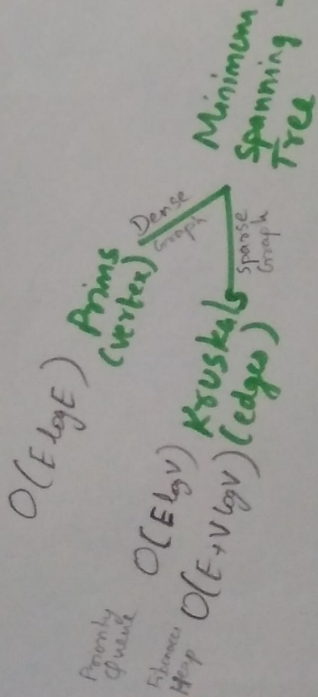 Minimum
Spanning
Tree
Dense
Graph
Sparse
Graph
Prims
(vertex)
Kruskals
(edges)
O(E log E)
O(E log V)
O(E+V log V)
Priority
Queue
Fibonacci
Heap